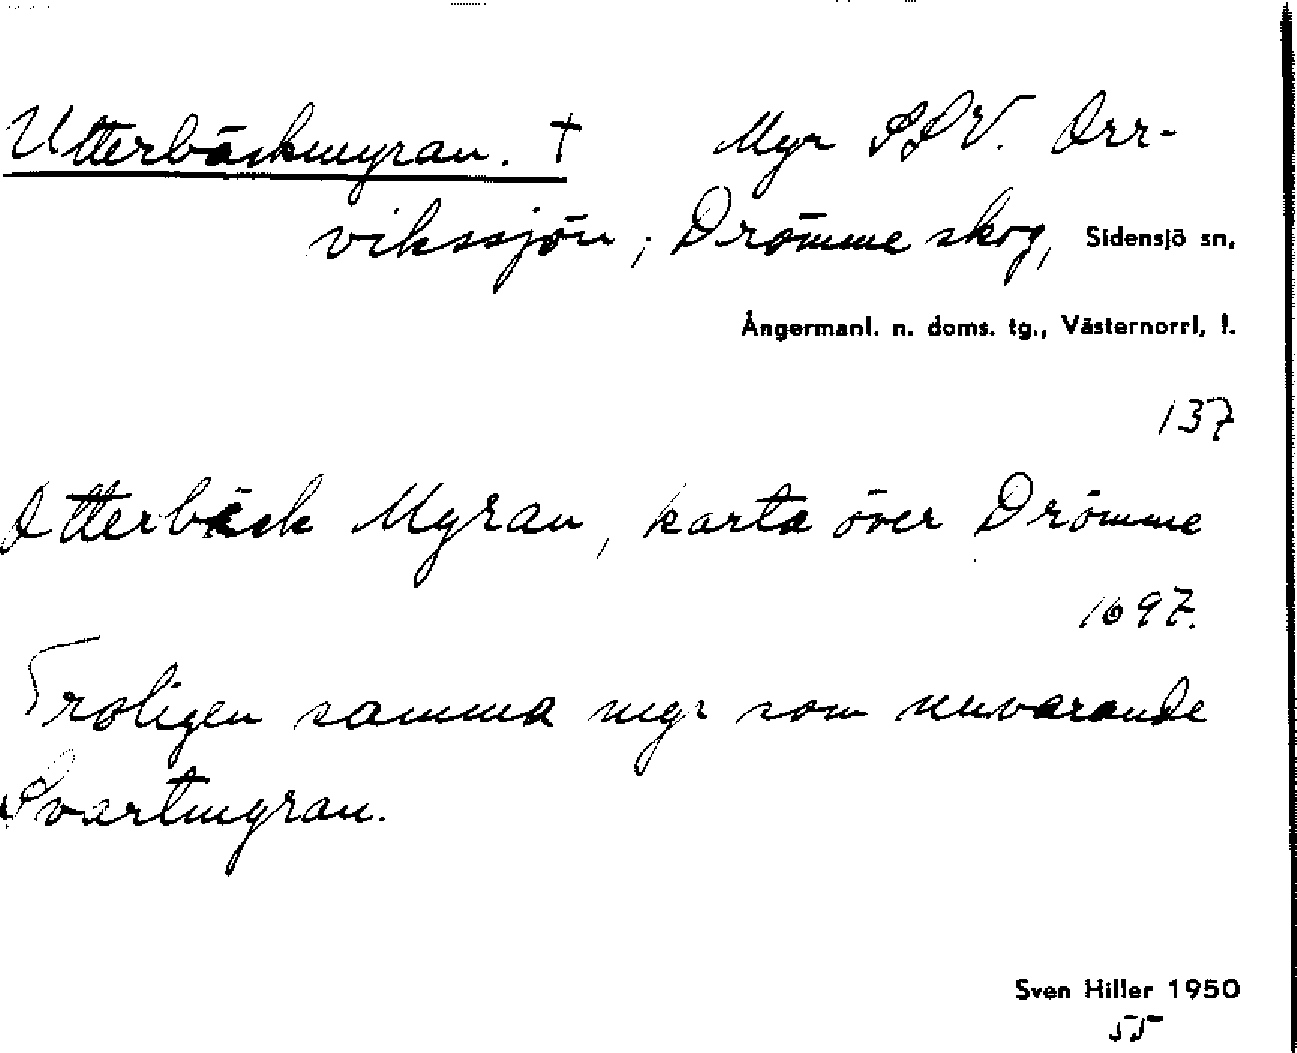 Utterbäckmyran. † Myr SSV. Orr-
vikssjön, Drömme skog, Sidensjö sn,
Ångermanl. n. doms. tg., Västernorrl, l.
137
Otterbäck Myran, karta över Drömme
1697.
Troligen samma myr som nuvarande
Svartmyran.
Sven Hiller 1950
55